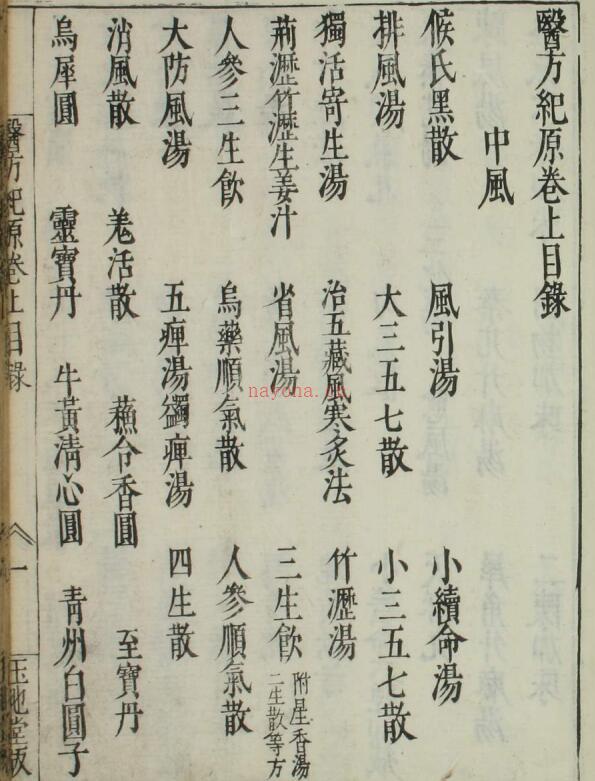 醫方紀原卷上目錄
中風
候氏黑散 風引湯 小續命湯
排風湯 大三五七散 小三五七散
獨活寄生湯 治五藏風寒灸法 竹瀝湯
荊瀝竹瀝生姜汁 省風湯 三生飲 附星香湯二生散等方
人參三生飲 烏藥順氣散 人參順氣散
大防風湯 五痺湯 蠲痺湯 四生散
消風散 羌活散 蘓合香圓 至寶丹
烏犀圓 靈寶丹 牛黃清心圓 青州白圓子
醫方紀原卷上目錄 一
nayona.cn